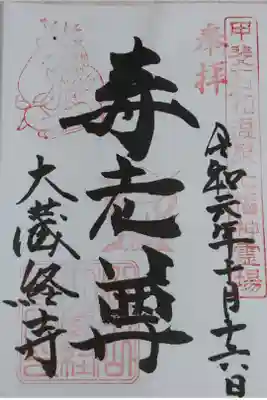 甲斐
七福神霊場
奉拝
令和元年十月十六日
寿老尊
大蔵経寺